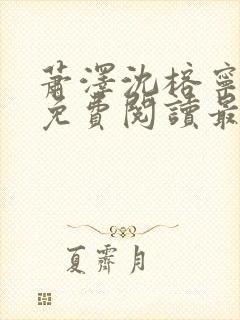 蕭澤沈榕寧
免費閱讀最
夏霽月